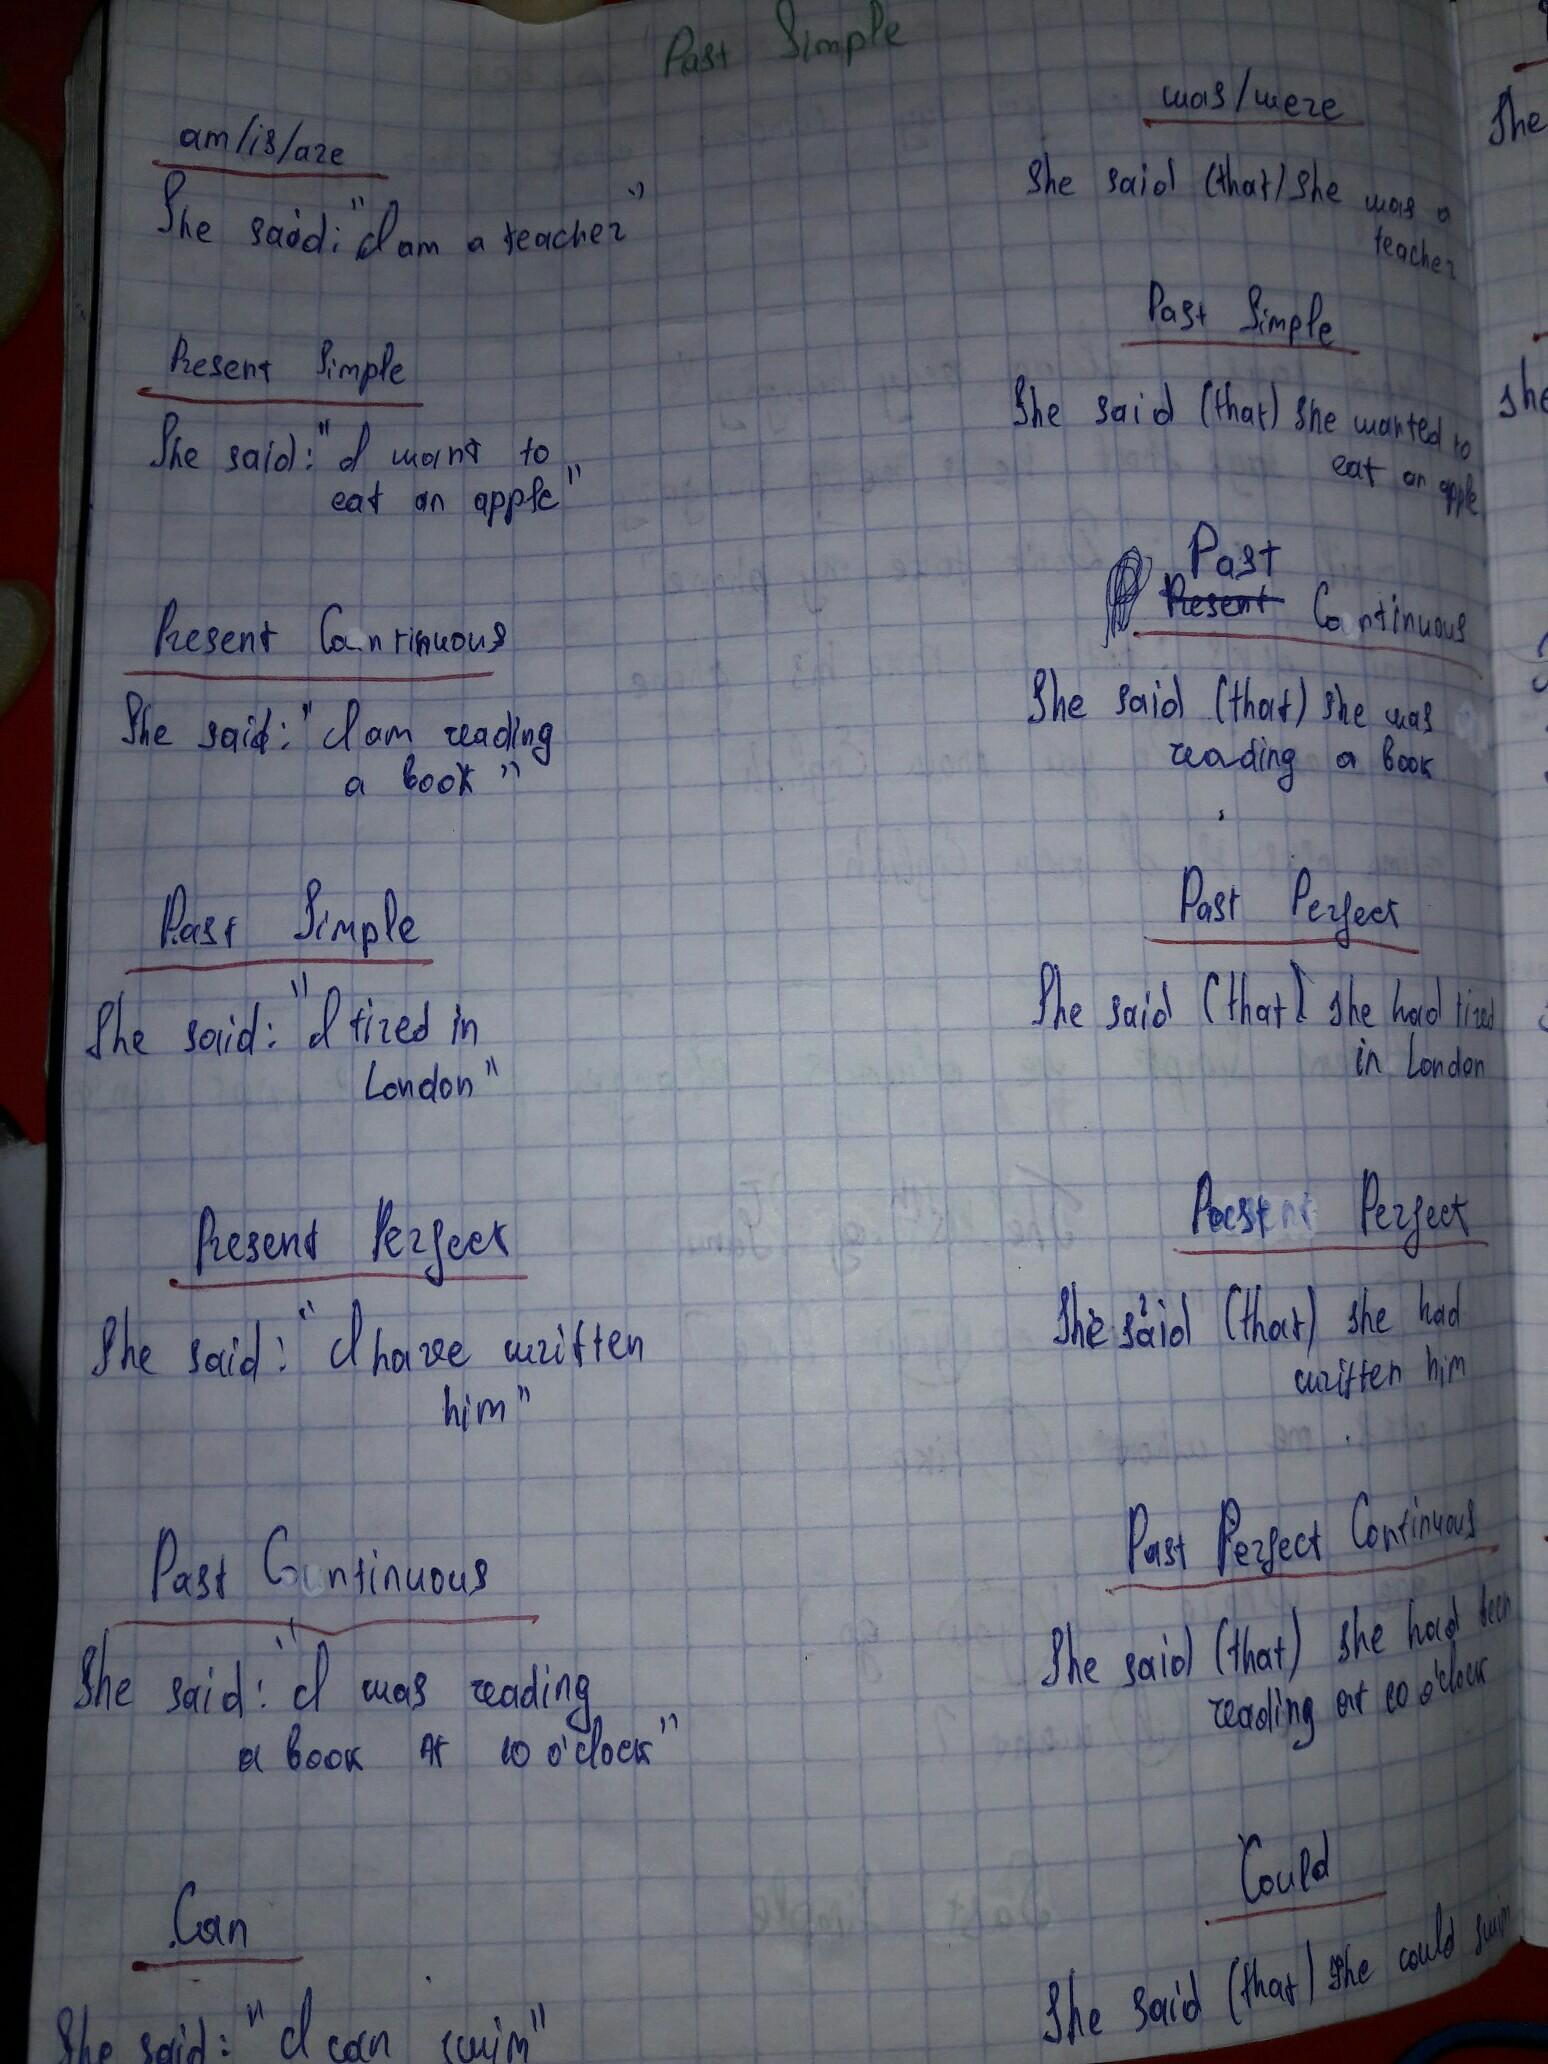 Past Simple
am/is/are
She said: "I am a teacher"
was/were
She said (that) she was a
teacher
Present Simple
She said: "I want to
eat an apple"
Past Simple
She said (that) she wanted to
eat an apple
Present Continuous
She said: "I am reading
a book"
Past
Present Continuous
She said (that) she was
reading a book
Past Simple
She said: "I lived in
London"
Past Perfect
She said (that) she had lived
in London
Present Perfect
She said: "I have written
him"
Past Perfect
She said (that) she had
written him
Past Continuous
She said: "I was reading
a book at 10 o'clock"
Past Perfect Continuous
She said (that) she had been
reading at 10 o'clock
Can
She said: "I can swim"
Could
She said (that) she could swim
She
She